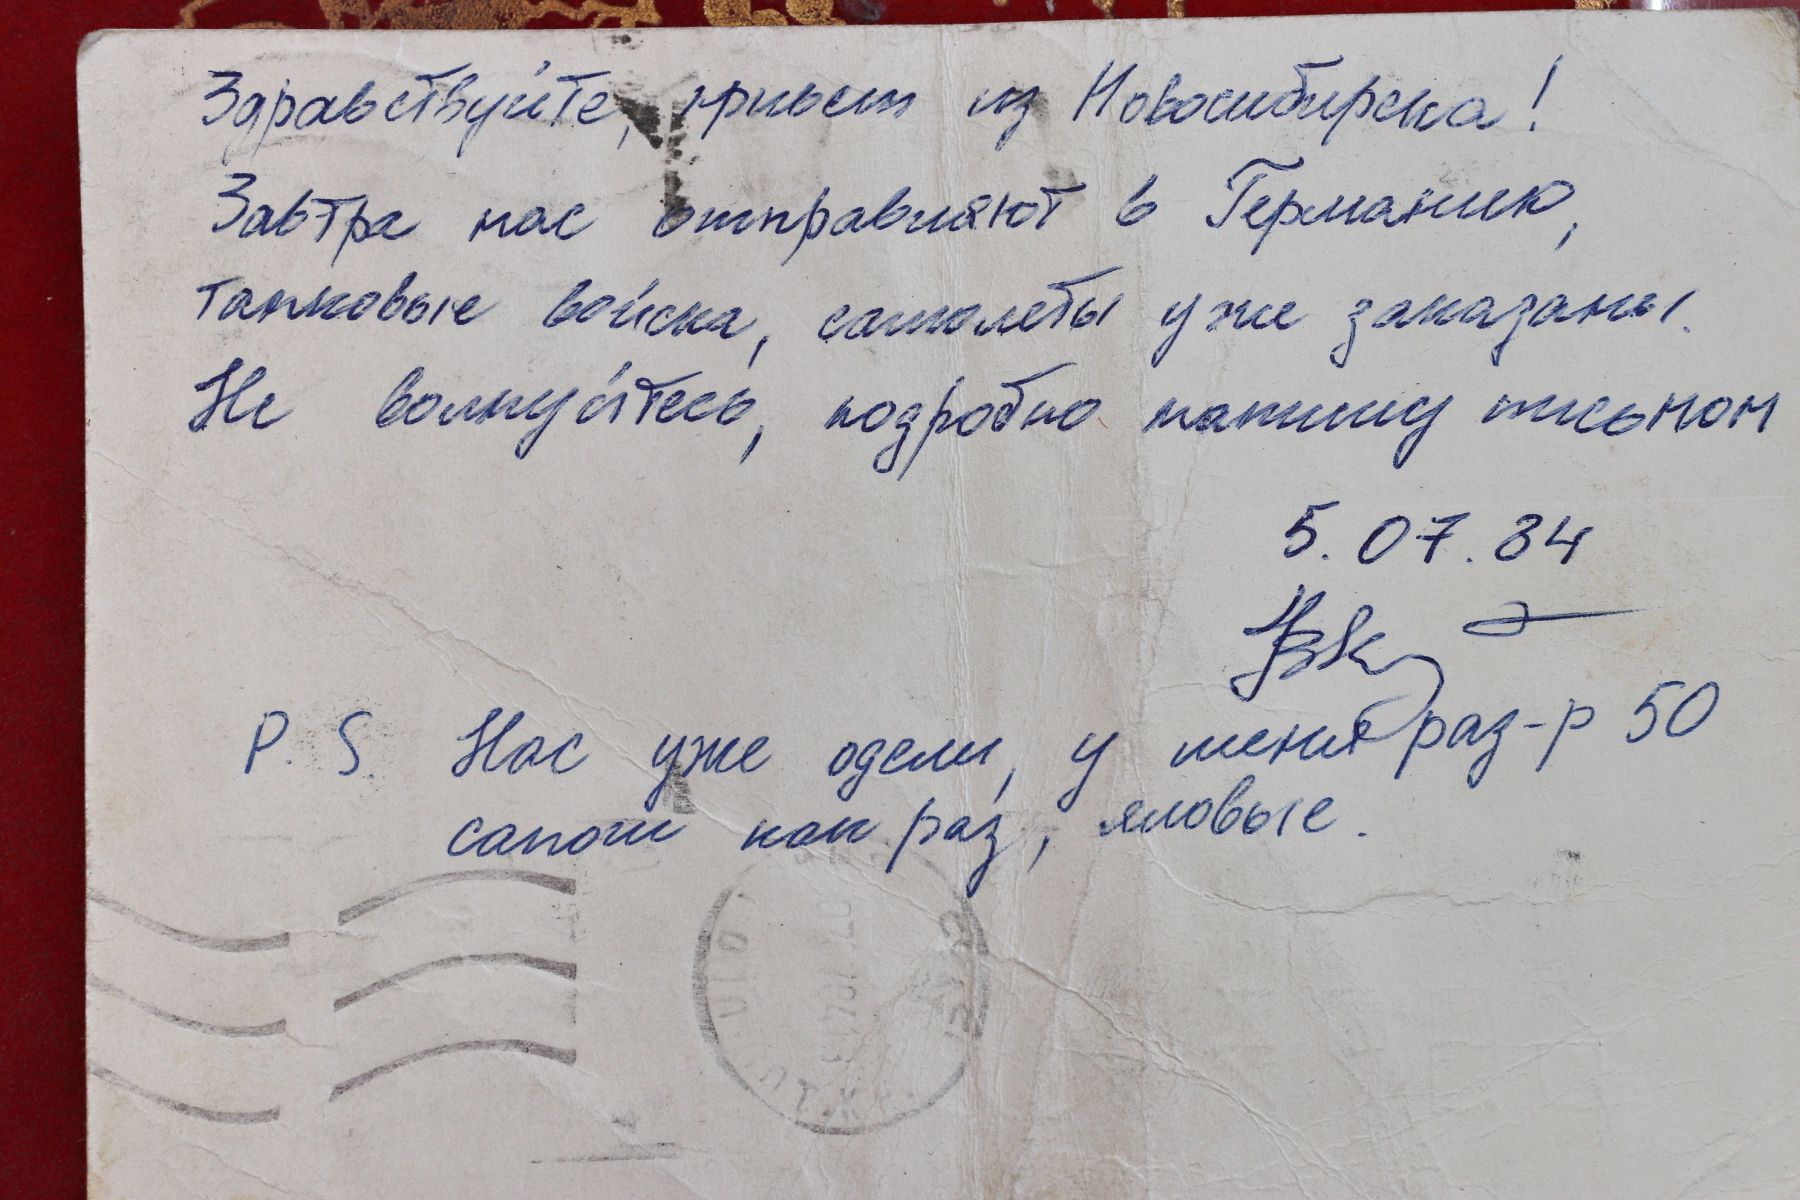 Здравствуйте, привет из Новосибирска!
Завтра нас отправляют в Германию,
танковые войска, самолеты уже заказаны.
Не волнуйтесь, подробно напишу письмом
5.07.84
P.S. Нас уже одели, у меня раз-р 50
сапоги как раз, яловые.